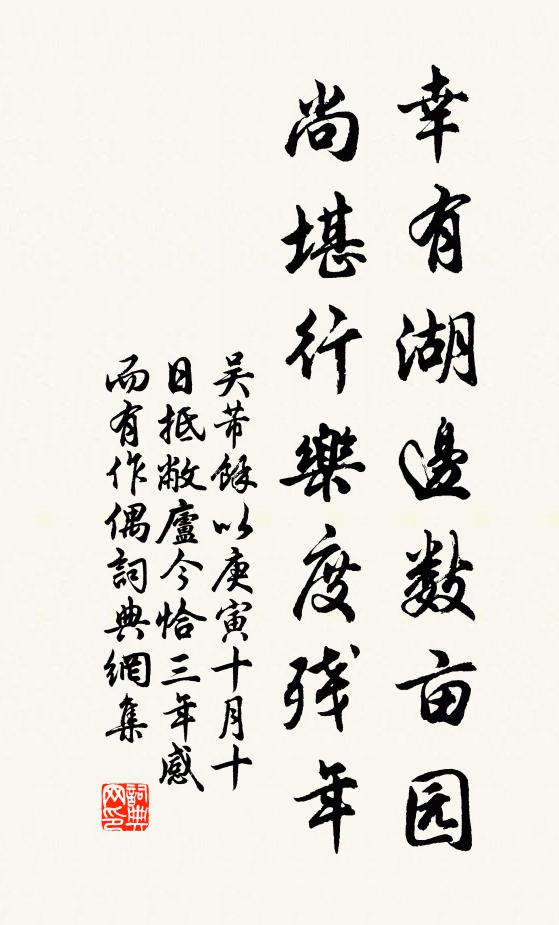 幸有湖邊数亩园
尚堪行樂度残年
吴芾餘以庚寅十月十
日抵敝廬今恰三年感
而有作偶詞典網集
詞典网印